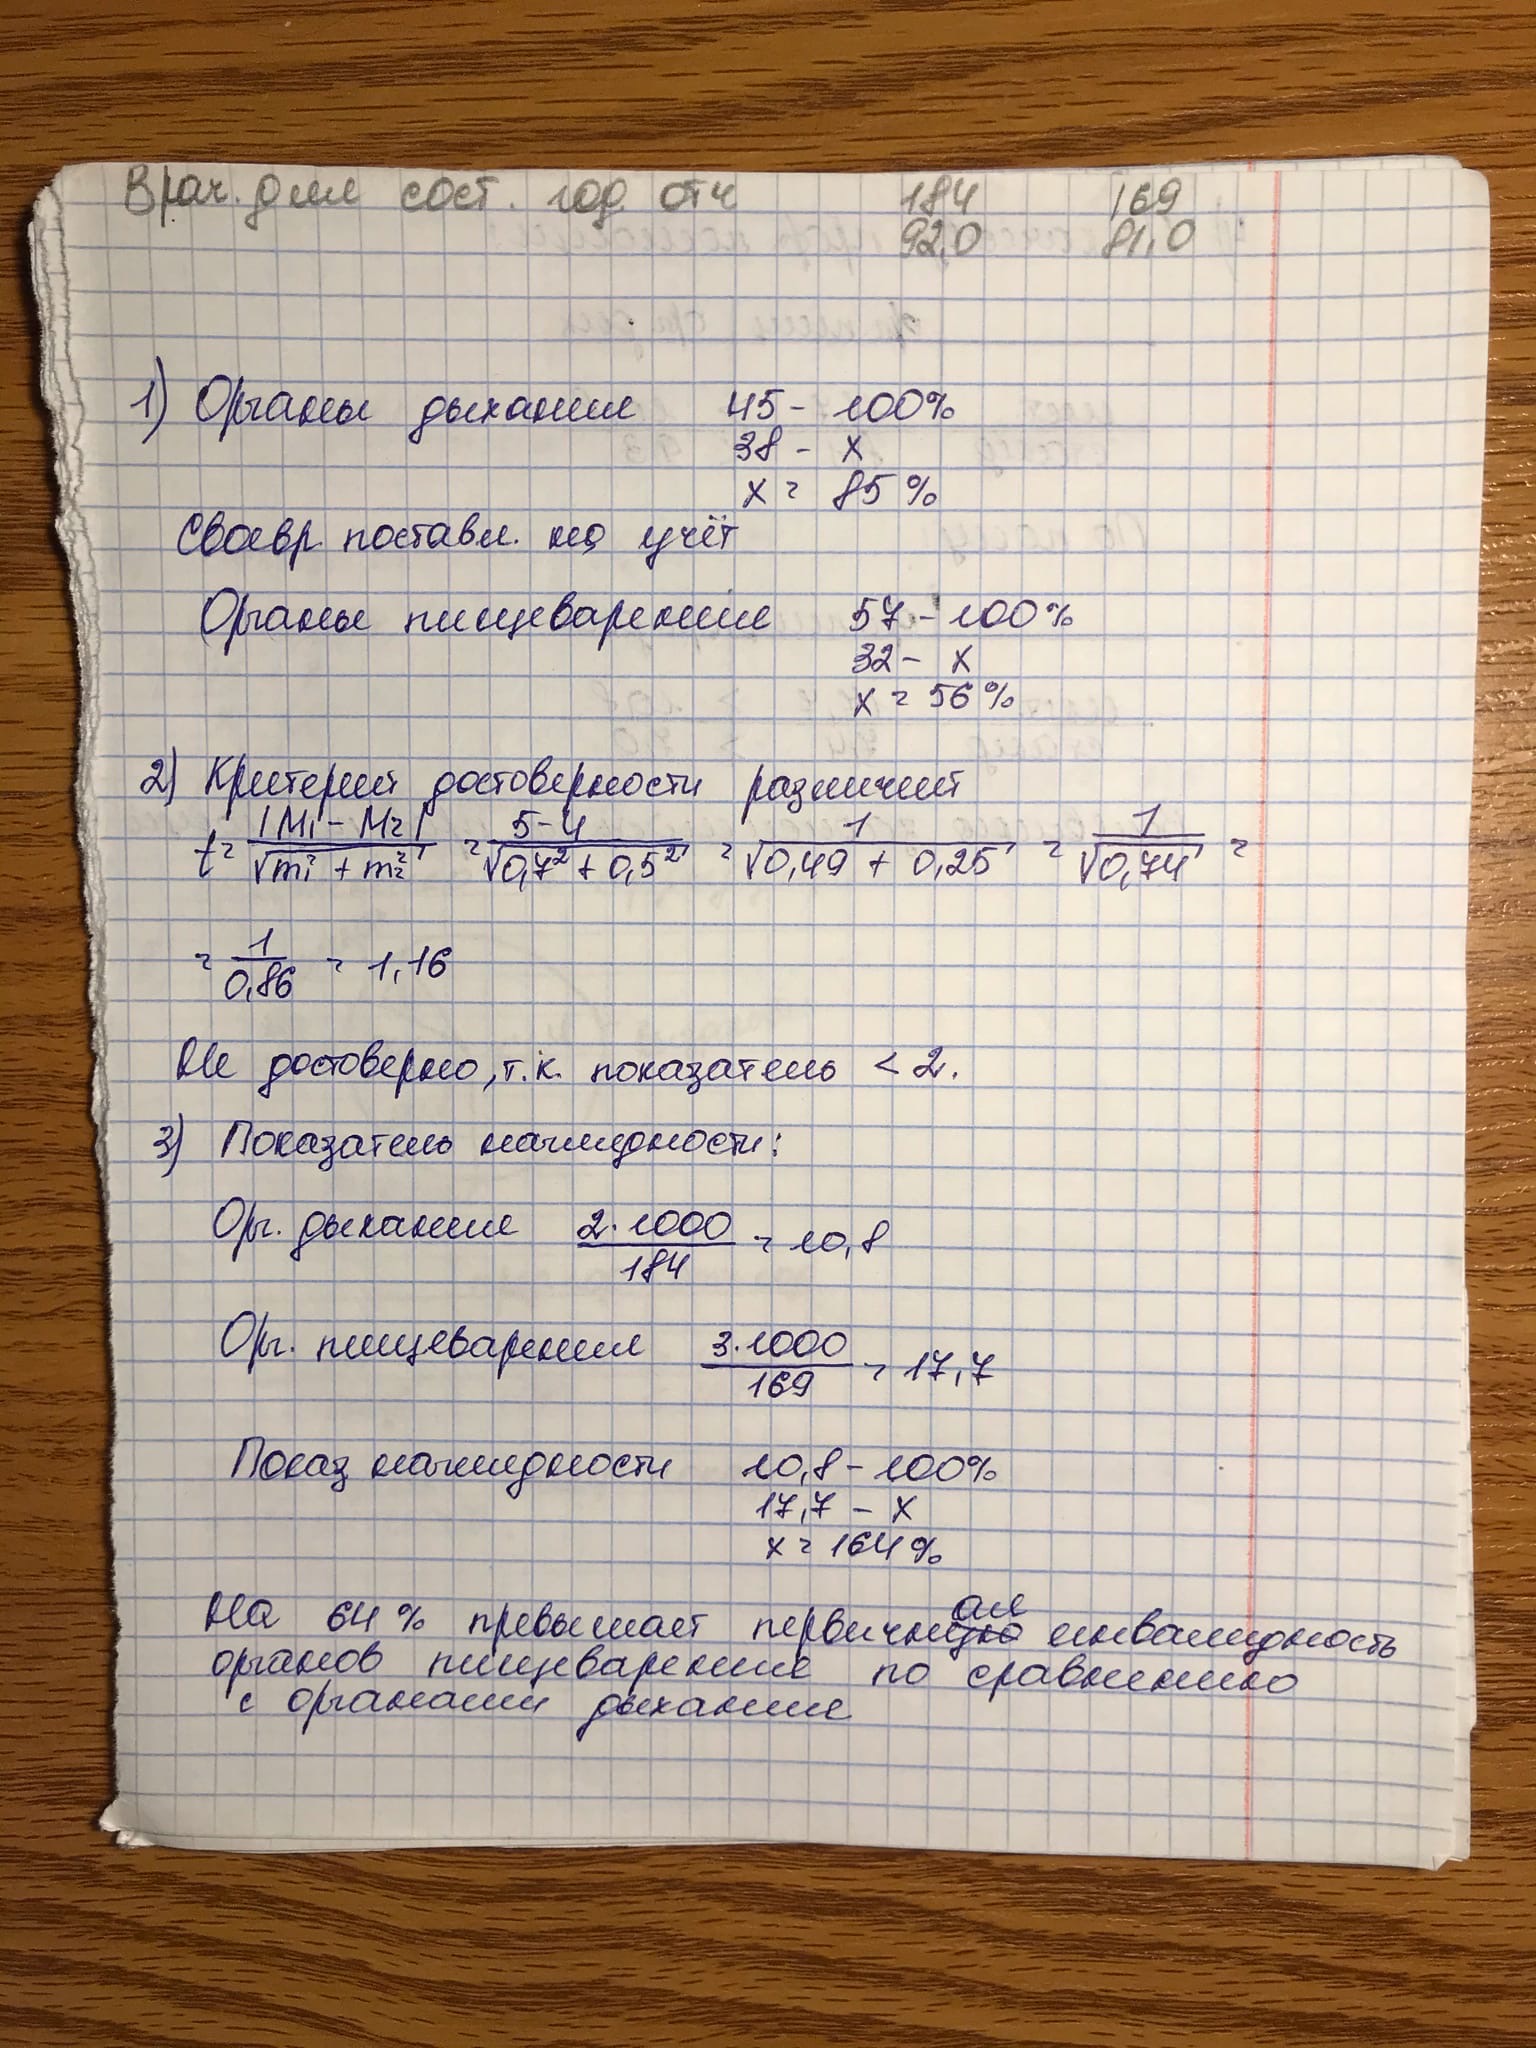 Врач. для сост. год. отч 184 169
92,0 81,0
1) Органы дыхания 45 - 100%
38 - х
х = 85%
Своевр. поставл. на учёт
Органы пищеварения 57 - 100%
32 - х
х = 56%
2) Критерий достоверности различий
t = |M₁ - M₂| / √m₁² + m₂² = 5-4 / √0,7² + 0,5² = 1 / √0,49 + 0,25 = 1 / √0,74 =
= 1 / 0,86 = 1,16
Не достоверно, т.к. показатель < 2.
3) Показатель наглядности:
Орг. дыхания 2·1000 / 184 = 10,8
Орг. пищеварения 3·1000 / 169 = 17,7
Показ наглядности 10,8 - 100%
17,7 - х
х = 164%
На 64% превышает первичная инвалидность
органов пищеварения по сравнению
с органами дыхания